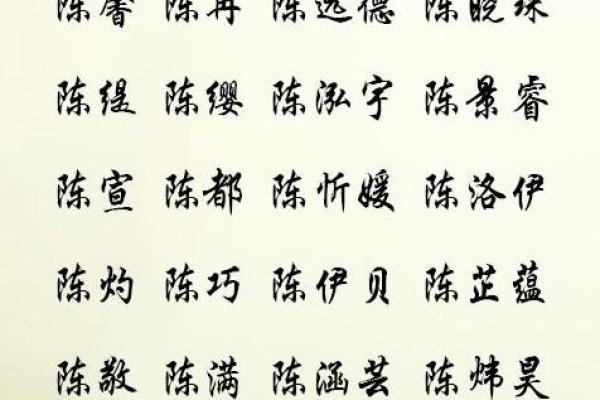 陈馨 陈冉 陈远德 陈晓珠
陈缇 陈缨 陈泓宇 陈景睿
陈宣 陈都 陈忻媛 陈洛伊
陈灼 陈巧 陈伊贝 陈芷蕴
陈敬 陈满 陈涵芸 陈炜昊